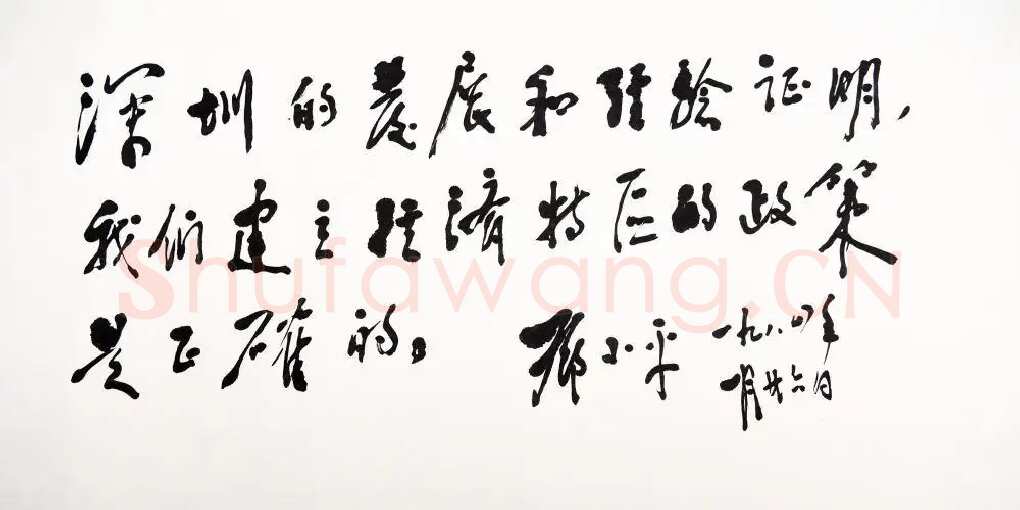 深圳的发展和经验证明，
我们建立经济特区的政策
是正确的。
邓小平
一九八四年
一月廿六日
Shufawang.CN